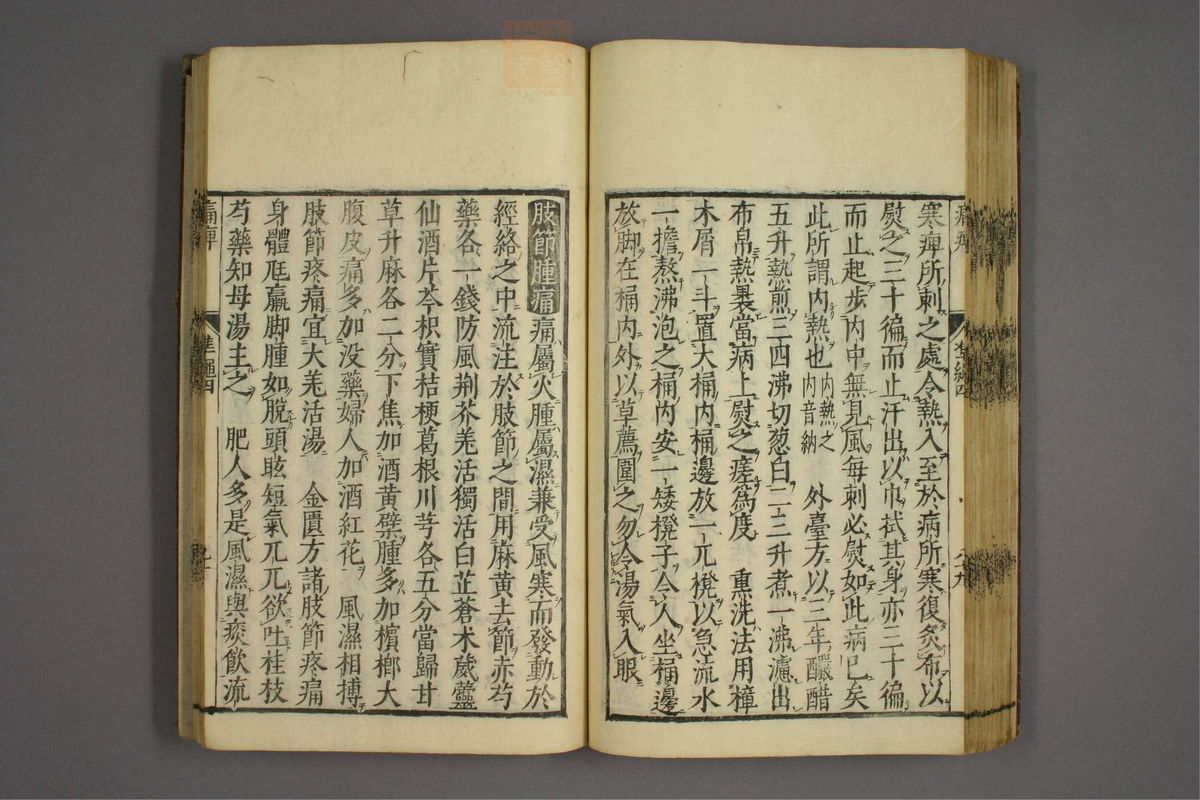 寒痺所刺之處令熱入至於病所寒復灸布以
熨之三十徧而止汗出以巾拭其身亦三十徧
而止起步内中無見風每刺必熨如此病已矣
此所謂内熱也内熱之内音納 外臺方以三年釅醋
五升熱煎三四沸切葱白二三升煮一沸濾出
布帛熱裹當病上熨之瘥爲度 熏洗法用樟
木屑一斗置大桶内桶邊放一兀櫈以急流水
一擔熬沸泡之桶内安一矮櫈子令人坐桶邊
放脚在桶内外以草薦圍之勿令湯氣入眼
肢節腫痛痛屬火腫屬濕兼受風寒而發動於
經絡之中流注於肢節之間用麻黄去節赤芍
藥各一錢防風荆芥羌活獨活白芷蒼术葳靈
仙酒片芩枳實桔梗葛根川芎各五分當歸甘
草升麻各二分下焦加酒黄檗腫多加檳榔大
腹皮痛多加没藥婦人加酒紅花 風濕相搏
肢節疼痛宜大羌活湯 金匱方諸肢節疼痛
身體尫羸脚腫如脫頭眩短氣兀兀欲吐桂枝
芍藥知母湯主之 肥人多是風濕與痰飲流